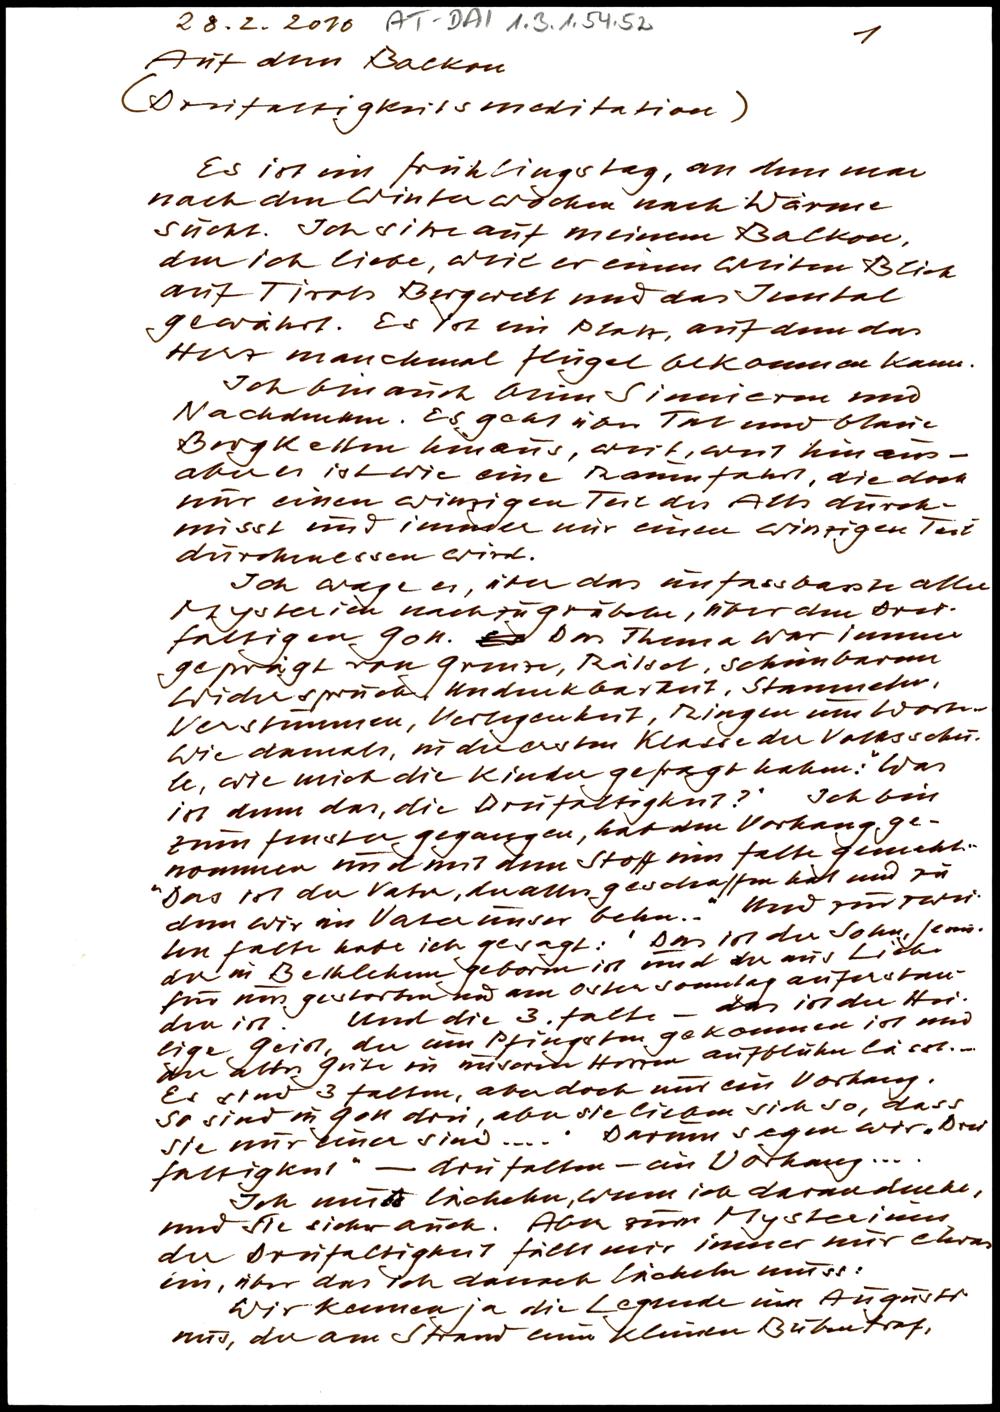 28.2.2010 AT-DAI 1.3.1.54.52
1
Auf dem Balkon
(Dreifaltigkeitsmeditation)
Es ist ein Frühlingstag, an dem man
nach den Winterwochen nach Wärme
sucht. Ich sitze auf meinem Balkon,
den ich liebe, weil er einen weiten Blick
auf Tirols Bergwelt und das Inntal
gewährt. Es ist ein Platz, auf dem das
Herz manchmal Flügel bekommen kann.
Ich bin auch beim Sinnieren und
Nachdenken. Es geht über Tal und blaue
Bergketten hinaus, weit, weit hinaus –
aber es ist wie eine Raumfahrt, die doch
nur einen winzigen Teil des Alls durch-
misst und immer nur einen winzigen Teil
durchmessen wird.
Ich wage es, über das unfassbarste aller
Mysterien nachzugrübeln, über den Drei-
faltigen Gott. Das Thema war immer
geprägt von Grenze, Rätsel, scheinbaren
Widersprüchen, Undenkbarkeit, Stammeln,
Verstummen, Verlegenheit, Ringen um Worte –
Wie damals, in der ersten Klasse der Volksschu-
le, wie mich die Kinder gefragt haben: "Was
ist denn das, die Dreifaltigkeit?" Ich bin
zum Fenster gegangen, hab den Vorhang ge-
nommen und mit dem Stoff eine Falte gemacht:
"Das ist der Vater, der alles geschaffen hat und zu
dem wir im Vater unser beten.." Und zur zwei-
ten Falte habe ich gesagt: "Das ist der Sohn, Jesus,
der in Bethlehem geboren ist und der aus Liebe
für uns gestorben und am Ostersonntag auferstan-
den ist. Und die 3. Falte – das ist der Hei-
lige Geist, der um Pfingsten gekommen ist und
der alles Gute in unseren Herzen aufblühen lässt...
Es sind 3 Falten, aber doch nur ein Vorhang.
So sind in Gott drei, aber sie lieben sich so, dass
sie nur einer sind ....." Darum sagen wir "Drei
faltigkeit" — drei Falten – ein Vorhang....
Ich muss lächeln, wenn ich daran denke,
und Sie sicher auch. Aber zum Mysterium
der Dreifaltigkeit fällt mir immer nur etwas
ein, über das ich danach lächeln muss:
Wir kennen ja die Legende von Augusti-
nus, der am Strand einen kleinen Buben traf,